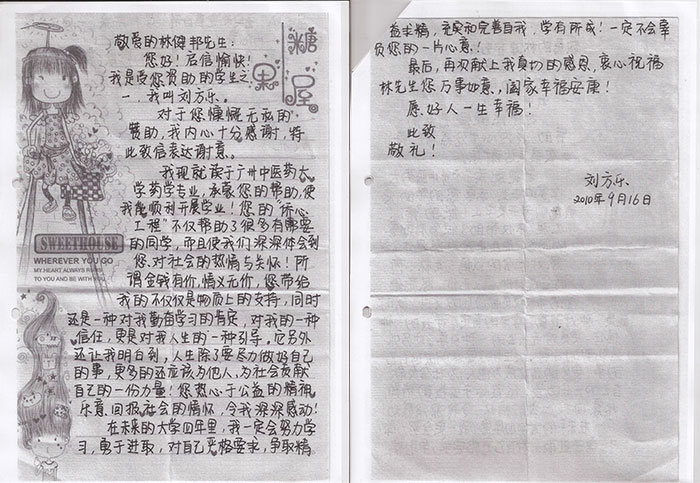 糖果屋
敬爱的林健邦先生：
您好！启信愉快！
我是受您资助的学生之
一，我叫刘方乐。
对于您慷慨无私的
赞助，我内心十分感谢，特
此致信表达谢意。
我现就读于广州中医药大
学药学专业，承蒙您的帮助，使
我能顺利开展学业！您的“
工程”不仅帮助了很多有需要
的同学，而且使我们深深体会到
您对社会的热情与关怀！所
谓金钱有价，情义无价，您带给
我的不仅仅是物质上的支持，同时
还是一种对我勤奋学习的肯定，对我的一种
信任，更是对我人生的一种引导，它另外
还让我明白到，人生除了要尽力做好自己
的事，更多的还应该为他人，为社会贡献
自己的一份力量！您热心于公益的精神，
乐意回报社会的情怀，令我深深感动！
在未来的大学四年里，我一定会努力学
习，勇于进取，对自己严格要求，争取精
SWEETHOUSE
WHEREVER YOU GO
MY HEART ALWAYS
TO YOU AND BE WITH YOU
益求精，充实和完善自我，学有所成！一定不会辜
负您的一片心意！
最后，再次献上我真切的感恩，衷心祝福
林先生您万事如意，阖家幸福安康！
愿好人一生幸福！
此致
敬礼！
刘方乐
2010年9月16日